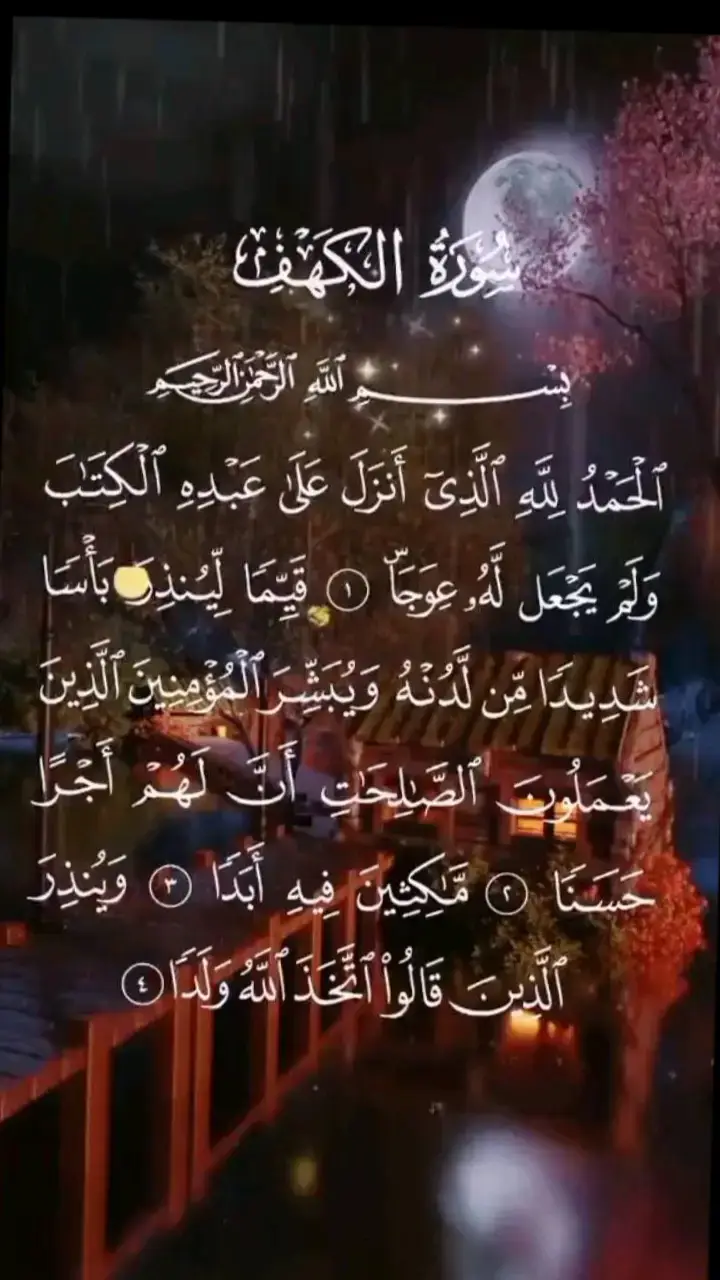 سُورَةُ الكَهْفِ
بِسْمِ ٱللَّهِ ٱلرَّحْمَٰنِ ٱلرَّحِيمِ
ٱلْحَمْدُ لِلَّهِ ٱلَّذِىٓ أَنزَلَ عَلَىٰ عَبْدِهِ ٱلْكِتَٰبَ
وَلَمْ يَجْعَل لَّهُۥ عِوَجَاۜ ١ قَيِّمًا لِّيُنذِرَ بَأْسًا
شَدِيدًا مِّن لَّدُنْهُ وَيُبَشِّرَ ٱلْمُؤْمِنِينَ ٱلَّذِينَ
يَعْمَلُونَ ٱلصَّٰلِحَٰتِ أَنَّ لَهُمْ أَجْرًا
حَسَنًا ٢ مَّٰكِثِينَ فِيهِ أَبَدًا ٣ وَيُنذِرَ
ٱلَّذِينَ قَالُوا۟ ٱتَّخَذَ ٱللَّهُ وَلَدًا ٤